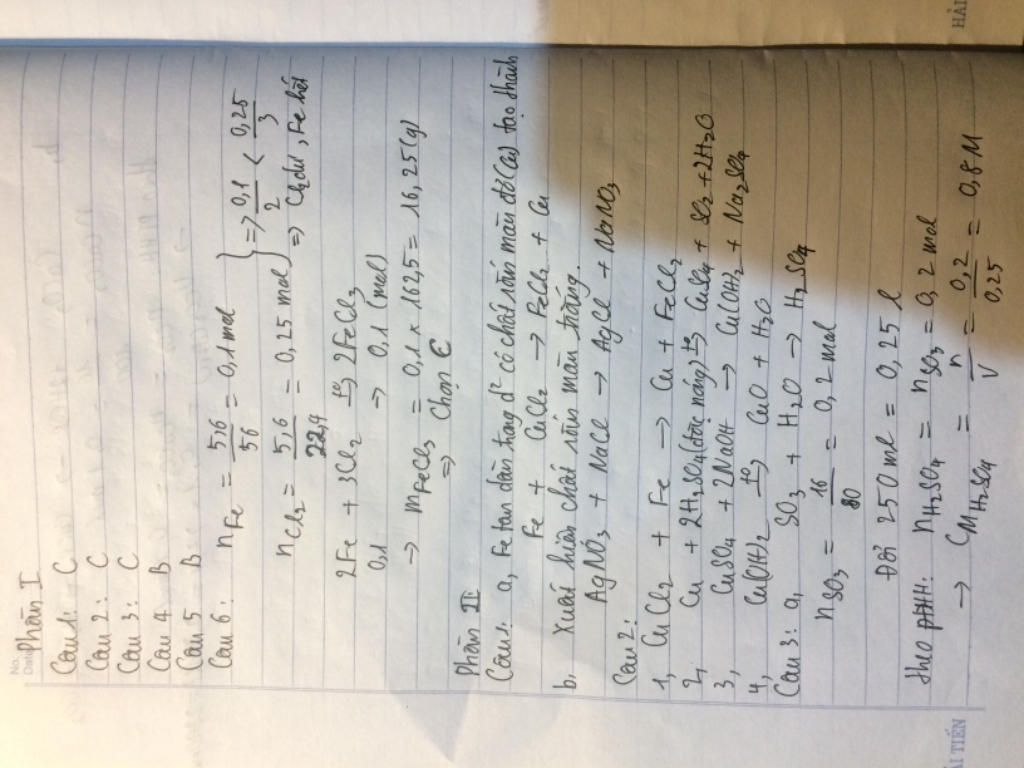 No.
Date
Phần I
Câu 1: C
Câu 2: C
Câu 3: C
Câu 4 B
Câu 5 B
Câu 6: nFe = 5,6/56 = 0,1 mol } => 0,1/2 < 0,25/3
nCl2 = 5,6/22,4 = 0,25 mol => Cl2 dư, Fe hết
2Fe + 3Cl2 t°→ 2FeCl3
0,1 → 0,1 (mol)
→ mFeCl3 = 0,1 x 162,5 = 16,25 (g)
=> Chọn C
Phần II:
Câu 1: a, Fe tan dần trong d² có chất rắn màu đỏ (Cu) tạo thành
Fe + CuCl2 → FeCl2 + Cu
b. Xuất hiện chất rắn màu trắng.
AgNO3 + NaCl → AgCl + NaNO3
Câu 2:
1, CuCl2 + Fe → Cu + FeCl2
2, Cu + 2H2SO4 (đặc nóng) t°→ CuSO4 + SO2 + 2H2O
3, CuSO4 + 2NaOH → Cu(OH)2 + Na2SO4
4, Cu(OH)2 t°→ CuO + H2O
Câu 3: a, SO3 + H2O → H2SO4
nSO3 = 16/80 = 0,2 mol
Đổi 250 ml = 0,25 l
theo PTHH: nH2SO4 = nSO3 = 0,2 mol
→ CMH2SO4 = n/V = 0,2/0,25 = 0,8M
ẢI TIẾN
HẢI